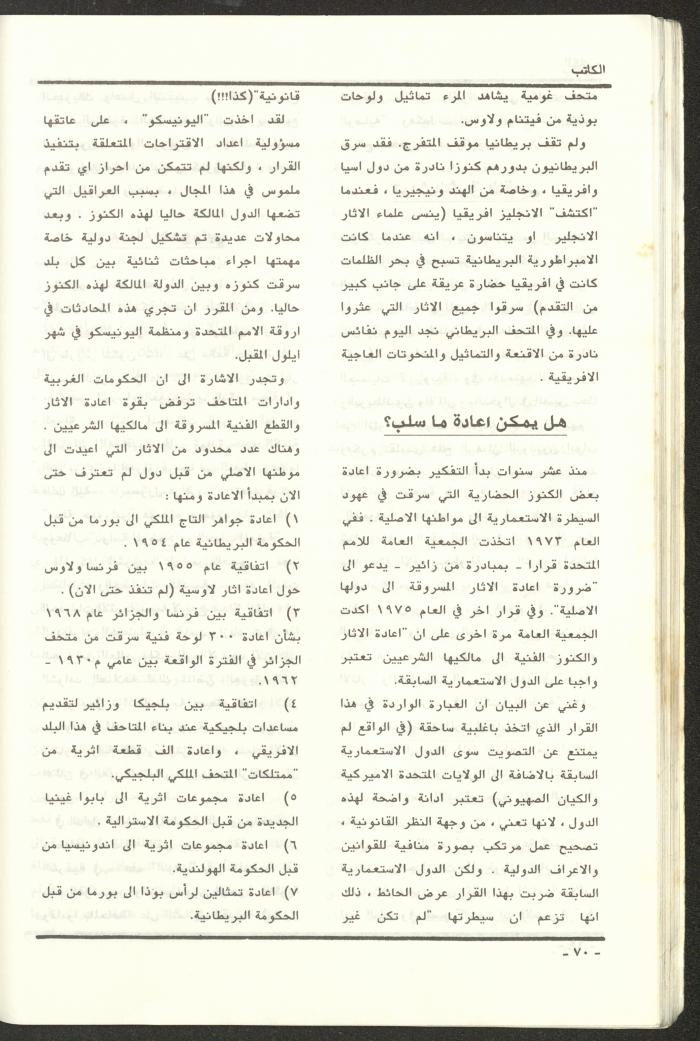 الكاتب
متحف غومية يشاهد المرء تماثيل ولوحات
بوذية من فيتنام ولاوس.
ولم تقف بريطانيا موقف المتفرج. فقد سرق
البريطانيون بدورهم كنوزا نادرة من دول اسيا
وافريقيا ، وخاصة من الهند ونيجيريا ، فعندما
"اكتشف" الانجليز افريقيا (ينسى علماء الاثار
الانجلير او يتناسون ، انه عندما كانت
الامبراطورية البريطانية تسبح في بحر الظلمات
كانت في افريقيا حضارة عريقة على جانب كبير
من التقدم) سرقوا جميع الاثار التي عثروا
عليها. وفي المتحف البريطاني نجد اليوم نفائس
نادرة من الاقنعة والتماثيل والمنحوتات العاجية
الافريقية .
هل يمكن اعادة ما سلب؟
منذ عشر سنوات بدأ التفكير بضرورة اعادة
بعض الكنوز الحضارية التي سرقت في عهود
السيطرة الاستعمارية الى مواطنها الاصلية . ففي
العام ١٩٧٣ اتخذت الجمعية العامة للامم
المتحدة قرارا - بمبادرة من زائير - يدعو الى
"ضرورة اعادة الاثار المسروقة الى دولها
الاصلية". وفي قرار اخر في العام ١٩٧٥ اكدت
الجمعية العامة مرة اخرى على ان "اعادة الاثار
والكنوز الفنية الى مالكيها الشرعيين تعتبر
واجبا على الدول الاستعمارية السابقة.
وغني عن البيان ان العبارة الواردة في هذا
القرار الذي اتخذ باغلبية ساحقة (في الواقع لم
يمتنع عن التصويت سوى الدول الاستعمارية
السابقة بالاضافة الى الولايات المتحدة الاميركية
والكيان الصهيوني) تعتبر ادانة واضحة لهذه
الدول ، لانها تعني ، من وجهة النظر القانونية ،
تصحيح عمل مرتكب بصورة منافية للقوانين
والاعراف الدولية . ولكن الدول الاستعمارية
السابقة ضربت بهذا القرار عرض الحائط ، ذلك
انها تزعم ان سيطرتها "لم تكن غير
قانونية"(كذا!!!)
لقد اخذت "اليونيسكو" ، على عاتقها
مسؤولية اعداد الاقتراحات المتعلقة بتنفيذ
القرار ، ولكنها لم تتمكن من احراز اي تقدم
ملموس في هذا المجال ، بسبب العراقيل التي
تضعها الدول المالكة حاليا لهذه الكنوز . وبعد
محاولات عديدة تم تشكيل لجنة دولية خاصة
مهمتها اجراء مباحثات ثنائية بين كل بلد
سرقت كنوزه وبين الدولة المالكة لهذه الكنوز
حاليا. ومن المقرر ان تجري هذه المحادثات في
اروقة الامم المتحدة ومنظمة اليونيسكو في شهر
ايلول المقبل.
وتجدر الاشارة الى ان الحكومات الغربية
وادارات المتاحف ترفض بقوة اعادة الاثار
والقطع الفنية المسروقة الى مالكيها الشرعيين .
وهناك عدد محدود من الاثار التي اعيدت الى
موطنها الاصلي من قبل دول لم تعترف حتى
الان بمبدأ الاعادة ومنها :
١) اعادة جواهر التاج الملكي الى بورما من قبل
الحكومة البريطانية عام ١٩٥٤ .
٢) اتفاقية عام ١٩٥٥ بين فرنسا ولاوس
حول اعادة اثار لاوسية (لم تنفذ حتى الان) .
٣) اتفاقية بين فرنسا والجزائر عام ١٩٦٨
بشأن اعادة ٣٠٠ لوحة فنية سرقت من متحف
الجزائر في الفترة الواقعة بين عامي م١٩٣٠ -
١٩٦٢.
٤) اتفاقية بين بلجيكا وزائير لتقديم
مساعدات بلجيكية عند بناء المتاحف في هذا البلد
الافريقي ، واعادة الف قطعة اثرية من
"ممتلكات" المتحف الملكي البلجيكي.
٥) اعادة مجموعات اثرية الى بابوا غينيا
الجديدة من قبل الحكومة الاسترالية .
٦) اعادة مجموعات اثرية الى اندونيسيا من
قبل الحكومة الهولندية.
٧) اعادة تمثالين لرأس بوذا الى بورما من قبل
الحكومة البريطانية.
- ٧٠ -